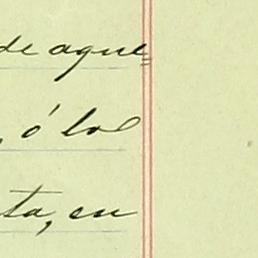 de aque=
, ó los
ta, en